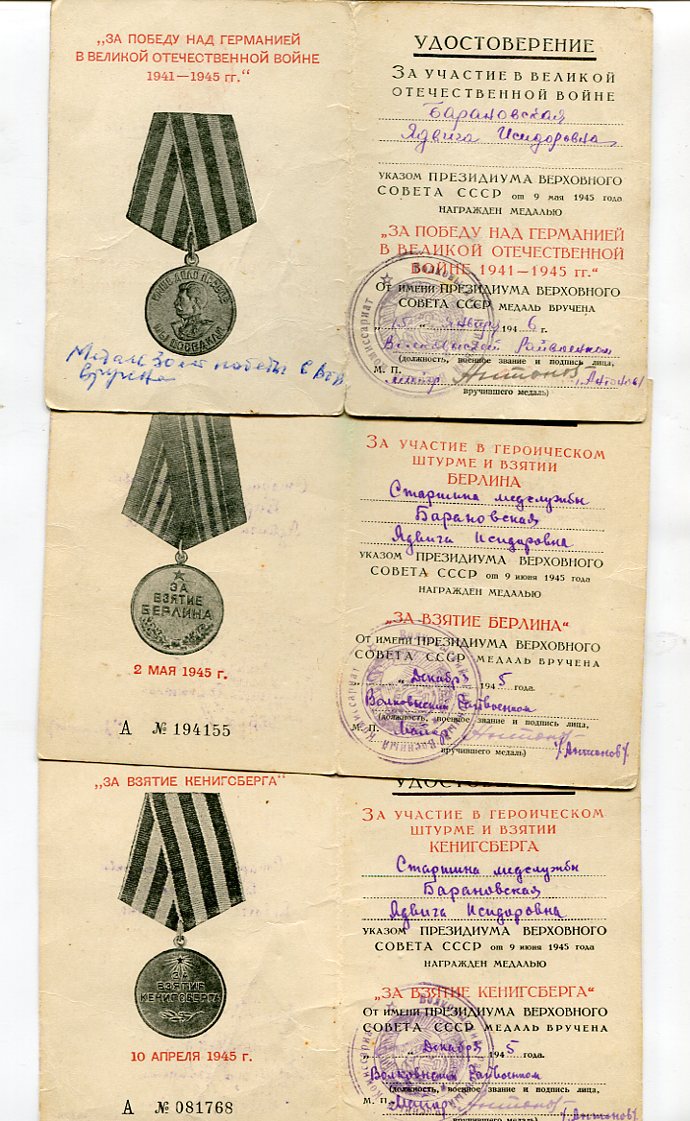 „ЗА ПОБЕДУ НАД ГЕРМАНИЕЙ
В ВЕЛИКОЙ ОТЕЧЕСТВЕННОЙ ВОЙНЕ
1941—1945 гг.“
НАШЕ ДЕЛО ПРАВОЕ
МЫ ПОБЕДИЛИ
Медаль 30 лет победы в ВОВ
вручена
УДОСТОВЕРЕНИЕ
ЗА УЧАСТИЕ В ВЕЛИКОЙ
ОТЕЧЕСТВЕННОЙ ВОЙНЕ
Барановская
Ядвига Исидоровна
УКАЗОМ ПРЕЗИДИУМА ВЕРХОВНОГО
СОВЕТА СССР от 9 мая 1945 года
НАГРАЖДЕН МЕДАЛЬЮ
„ЗА ПОБЕДУ НАД ГЕРМАНИЕЙ
В ВЕЛИКОЙ ОТЕЧЕСТВЕННОЙ
ВОЙНЕ 1941—1945 гг.“
ОТ ИМЕНИ ПРЕЗИДИУМА ВЕРХОВНОГО
СОВЕТА СССР МЕДАЛЬ ВРУЧЕНА
„15“ январь 1946 г.
Волковысский Райвоенком
(должность, военное звание и подпись лица,
М. П. майор Антонов /Антонов/
вручившего медаль)
ЗА
ВЗЯТИЕ
БЕРЛИНА
2 МАЯ 1945 г.
А № 194155
ЗА УЧАСТИЕ В ГЕРОИЧЕСКОМ
ШТУРМЕ И ВЗЯТИИ
БЕРЛИНА
Старшина медслужбы
Барановская
Ядвига Исидоровна
УКАЗОМ ПРЕЗИДИУМА ВЕРХОВНОГО
СОВЕТА СССР от 9 июня 1945 года
НАГРАЖДЕН МЕДАЛЬЮ
„ЗА ВЗЯТИЕ БЕРЛИНА“
ОТ ИМЕНИ ПРЕЗИДИУМА ВЕРХОВНОГО
СОВЕТА СССР МЕДАЛЬ ВРУЧЕНА
„ “ Декабрь 1945 года.
Волковысский Райвоенком
(должность, военное звание и подпись лица,
М. П. Майор Антонов
вручившего медаль) /Антонов/.
„ЗА ВЗЯТИЕ КЕНИГСБЕРГА“
ЗА
ВЗЯТИЕ
КЕНИГСБЕРГА
10 АПРЕЛЯ 1945 г.
А № 081768
ЗА УЧАСТИЕ В ГЕРОИЧЕСКОМ
ШТУРМЕ И ВЗЯТИИ
КЕНИГСБЕРГА
Старшина медслужбы
Барановская
Ядвига Исидоровна
УКАЗОМ ПРЕЗИДИУМА ВЕРХОВНОГО
СОВЕТА СССР от 9 июня 1945 года
НАГРАЖДЕН МЕДАЛЬЮ
„ЗА ВЗЯТИЕ КЕНИГСБЕРГА“
ОТ ИМЕНИ ПРЕЗИДИУМА ВЕРХОВНОГО
СОВЕТА СССР МЕДАЛЬ ВРУЧЕНА
„ “ Декабря 1945 года.
Волковысский Райвоенком
(должность, военное звание и подпись лица,
М. П. Майор Антонов
вручившего медаль) /Антонов/